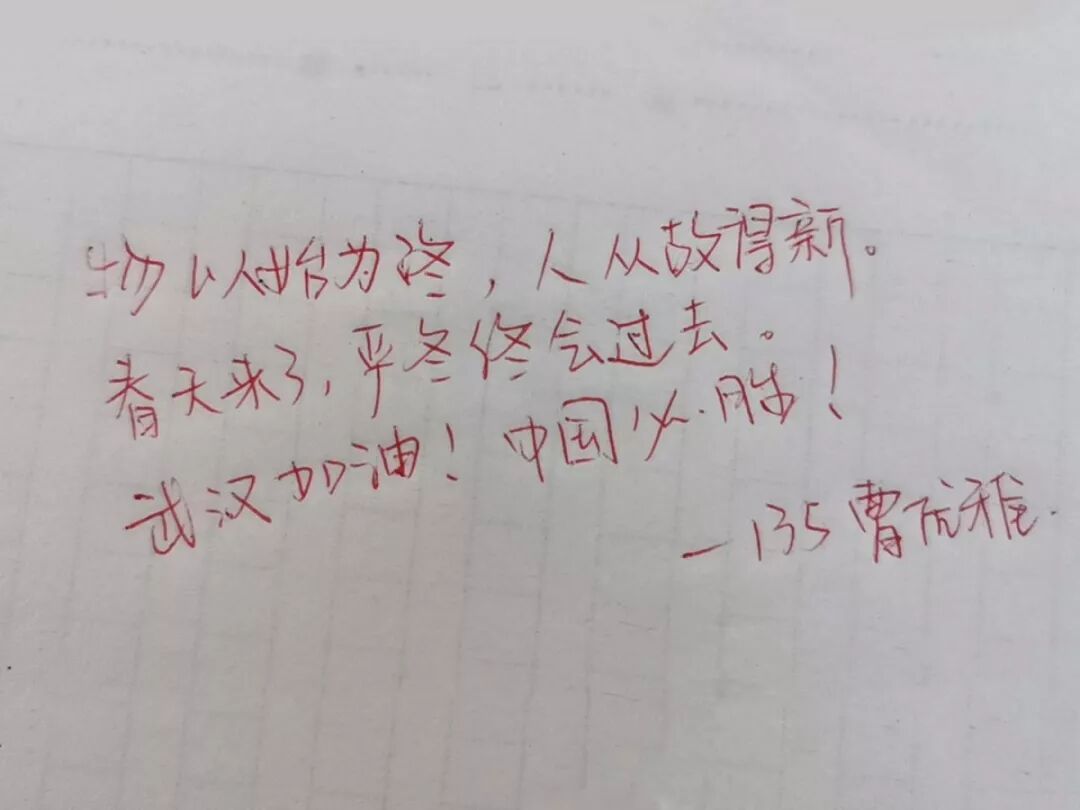 物以始为终，人从故得新。
春天来了，严冬终会过去。
武汉加油！中国必胜！
—135曹雅